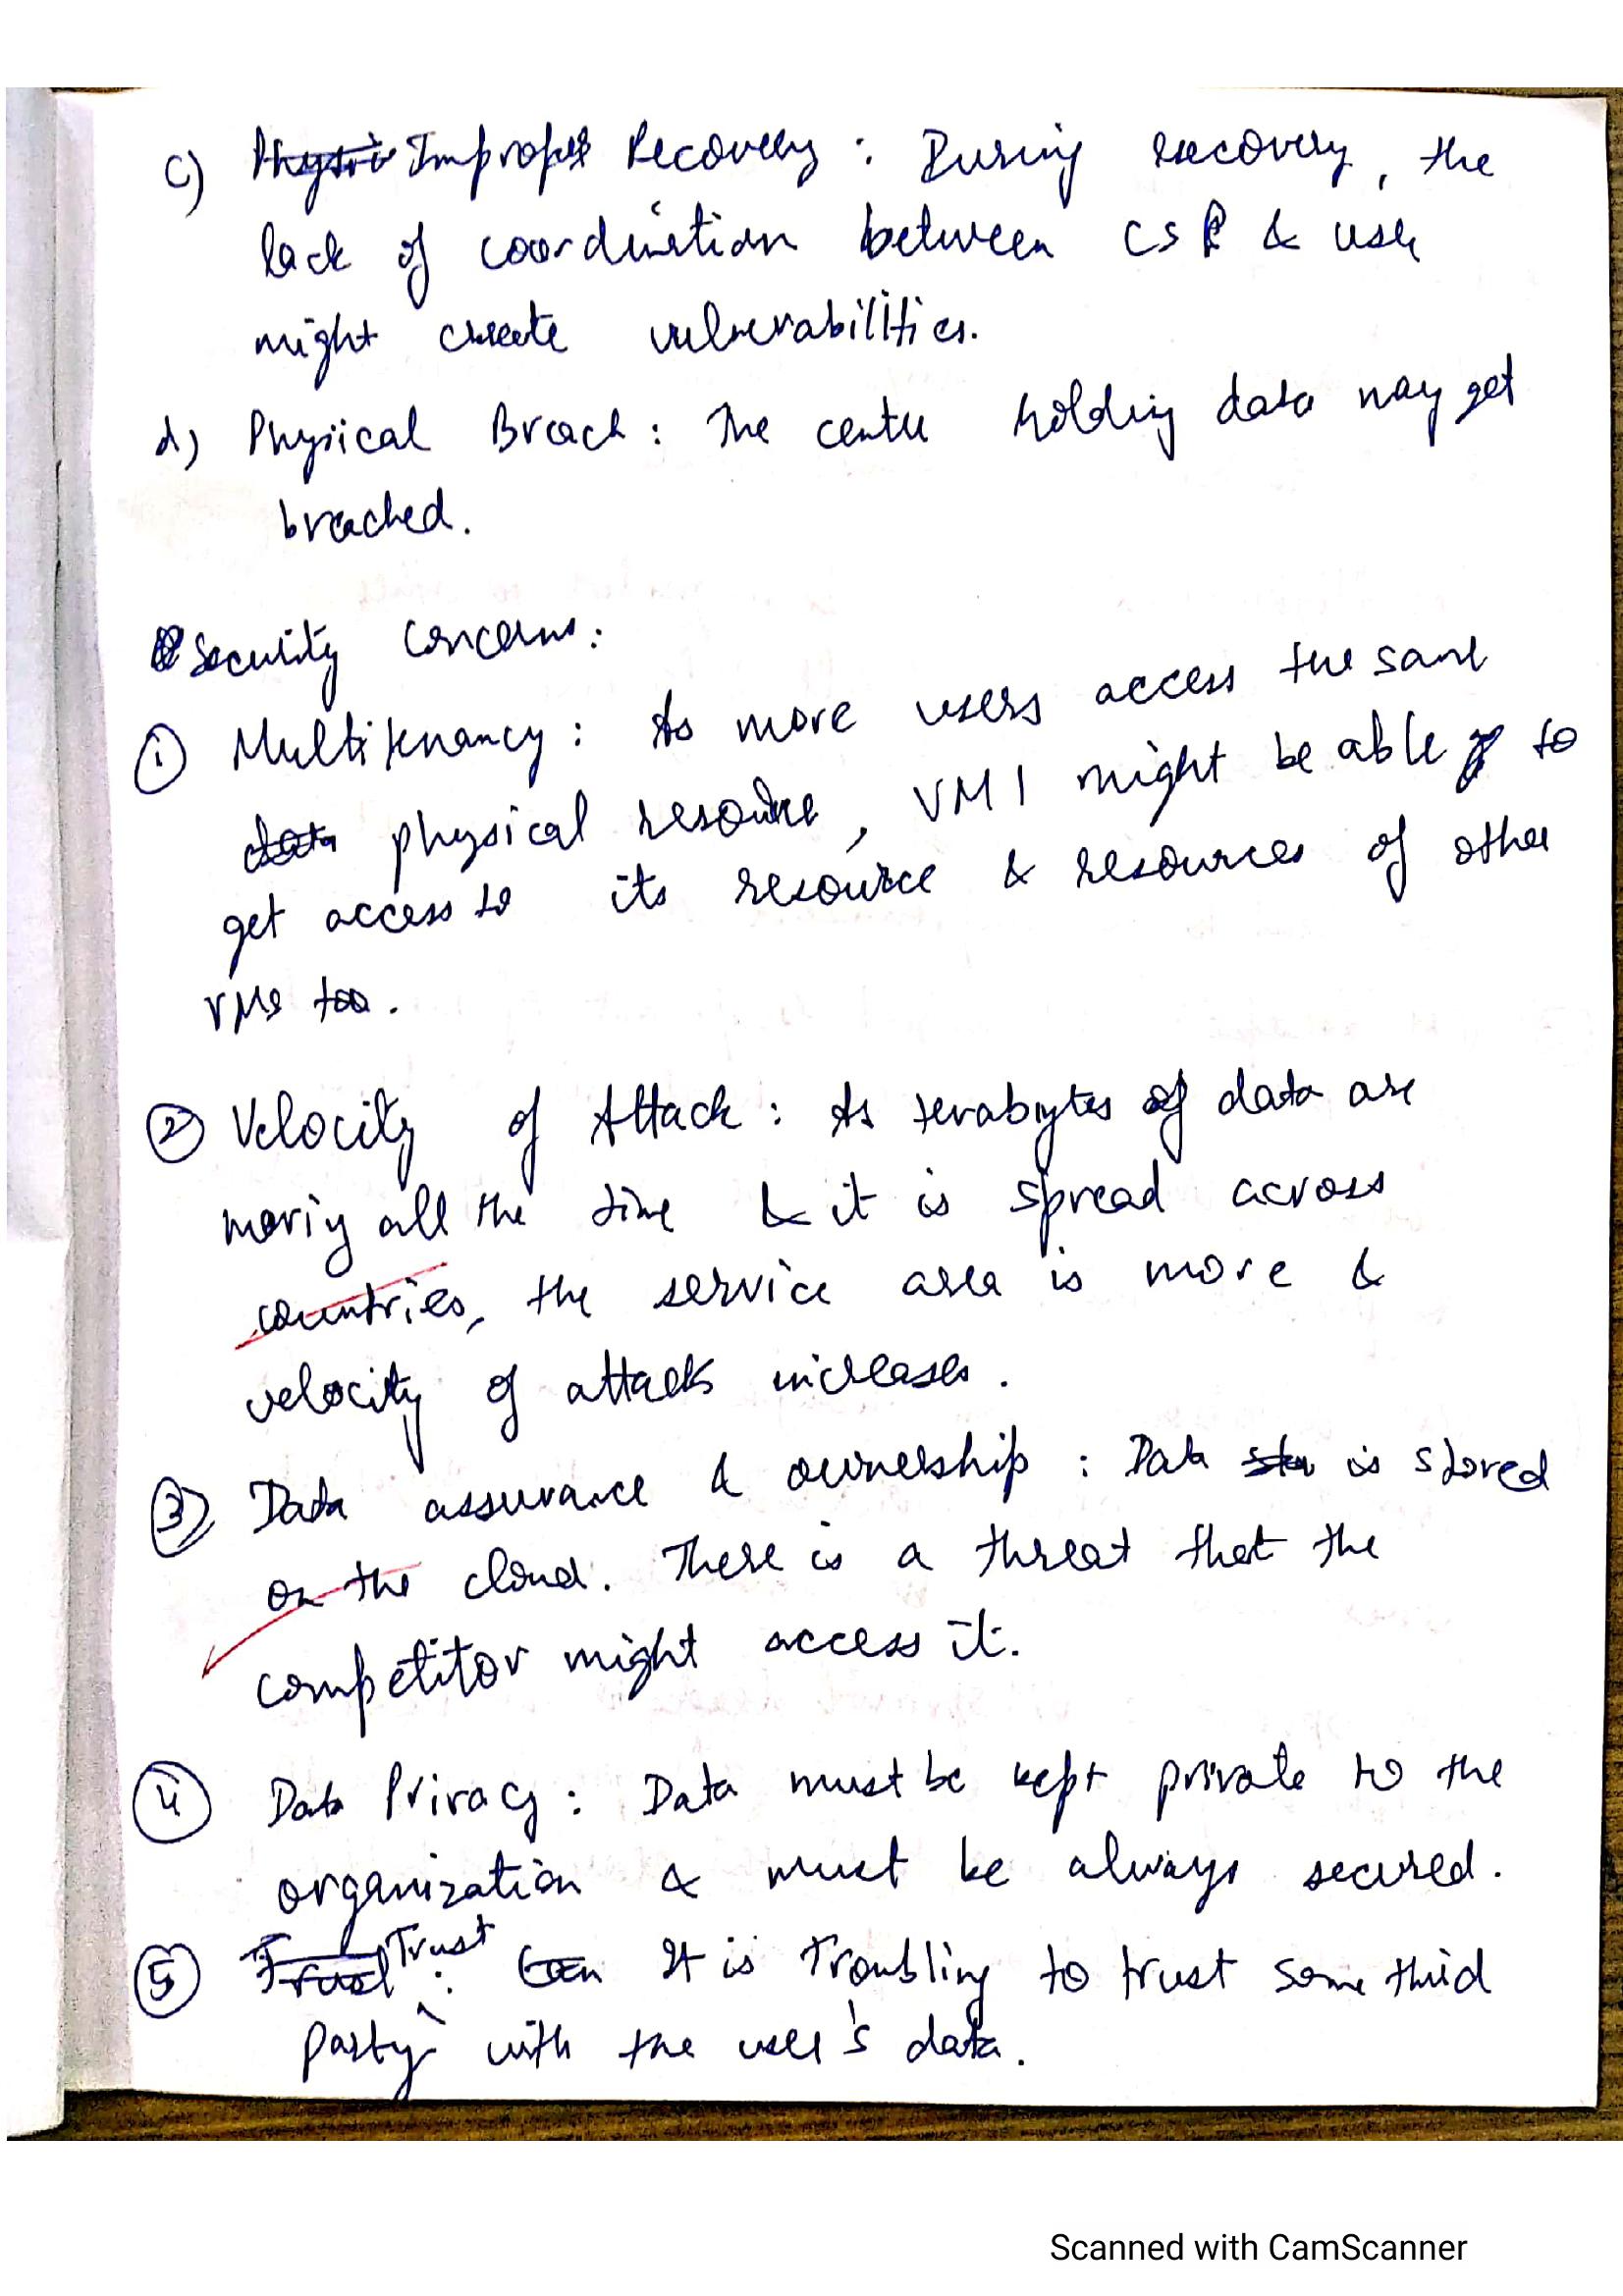 c) Physi Improper Recovery : During recovery, the
lack of coordination between CSP & user
might create vulnerabilities.
d) Physical Breach : The centre holding data may get
breached.
Security Concerns :
① Multitenancy : As more users access the same
data physical resource, VM1 might be able to
get access to its resource & resources of other
VMs too.
② Velocity of Attack : As terabytes of data are
moving all the time & it is spread across
countries, the service area is more &
velocity of attack increases.
③ Data assurance & ownership : Data sto is stored
on the cloud. There is a threat that the
competitor might access it.
④ Data Privacy : Data must be kept private to the
organization & must be always secured.
⑤ Trust Trust : Can It is troubling to trust some third
party with the user's data.
Scanned with CamScanner